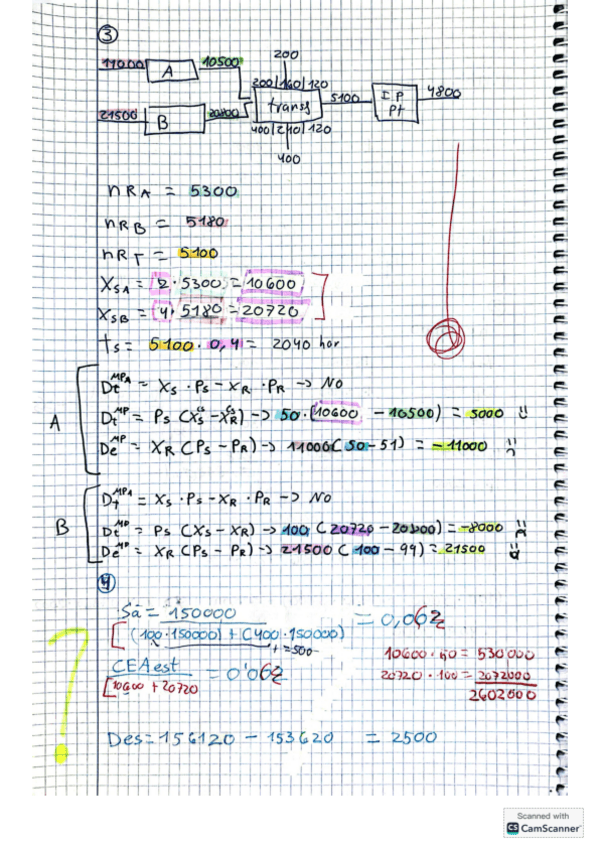 ③
200
11000 A 10500
200|160|120
transf 5100 I.P Pt 4800
21500 B
400|240|120
400
nRA = 5300
nRB = 5180
nRT = 5100
XSA = (2 · 5300) = 10600
XSB = (4 · 5180 = 20720
ts = 5100 · 0,4 = 2040 hor
A
Dt^MPA = Xs · Ps - XR · PR → NO
Dt^MP = Ps (Xs - XR) → 50 · (10600 - 10500) = 5000
De^MP = XR (Ps - PR) → 11000 (50 - 51) = -11000
B
Dt^MPA = Xs · Ps - XR · PR → NO
Dt^MP = Ps (Xs - XR) → 100 (20720 - 20800) = -8000
De^MP = XR (Ps - PR) → 21500 (100 - 99) = 21500
④
Sa = 150000 = 0,062
[(100 · 150000) + (400 · 150000)
+ = 500
CEAest = 0'062
[10600 + 20720
10600 · 50 = 530000
20720 · 100 = 2072000
2602000
?
Des = 156120 - 153620 = 2500
Scanned with
CS CamScanner